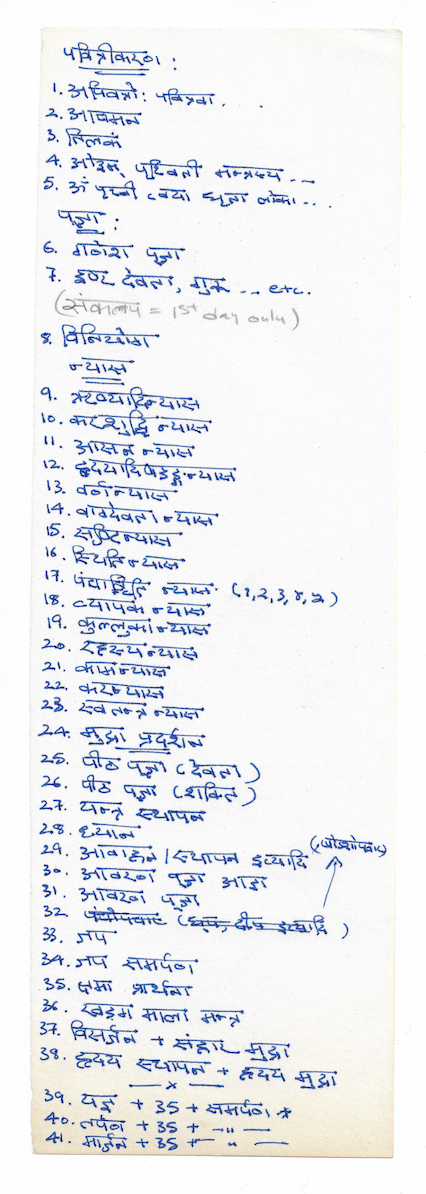 पवित्रीकरण :
1. अपवित्रो: पवित्रवा . . .
2. आचमन
3. तिलकं
4. ओइम् पृथिवती मन्त्रस्य ...
5. ॐ पृथ्वी त्वया धृता लोका ...
पूजा :
6. गणेश पूजा
7. इष्ट देवता, गुरू ... etc.
(संकल्प = 1st day only)
8. विनियोग
न्यास
9. ऋष्यादिन्यास
10. करशुद्धि न्यास
11. आसन न्यास
12. हृदयादिषडङ्गन्यास
13. वर्णन्यास
14. वाग्देवता न्यास
15. सृष्टिन्यास
16. स्थितिन्यास
17. न्यास (१,2,3,४,५)
18. व्यापक न्यास
19. कुल्लुकान्यास
20. रहस्य न्यास
21. कामन्यास
22. करन्यास
23. स्वतन्त्र न्यास
24. मुद्रा प्रदर्शन
25. पीठ पूजा (देवता)
26. पीठ पूजा (शक्ति)
27. यन्त्र स्थापन
28. ध्यान
29. आवाहन / स्थापन इत्यादि (षोडशोपचार)
30. आवरण पूजा आज्ञा
31. आवरण पूजा
32 पंचोपचार (धूप, दीप इत्यादि)
33. जप
34. जप समर्पण
35. क्षमा प्रार्थना
36. खड्ग माला मन्त्र
37. विसर्जन + संहार मुद्रा
38. हृदय स्थापन + हृदय मुद्रा
— x —
39. यज्ञ + 35 + समर्पण *
40. तर्पण + 35 + — " —
41. मार्जन + 35 + — " —